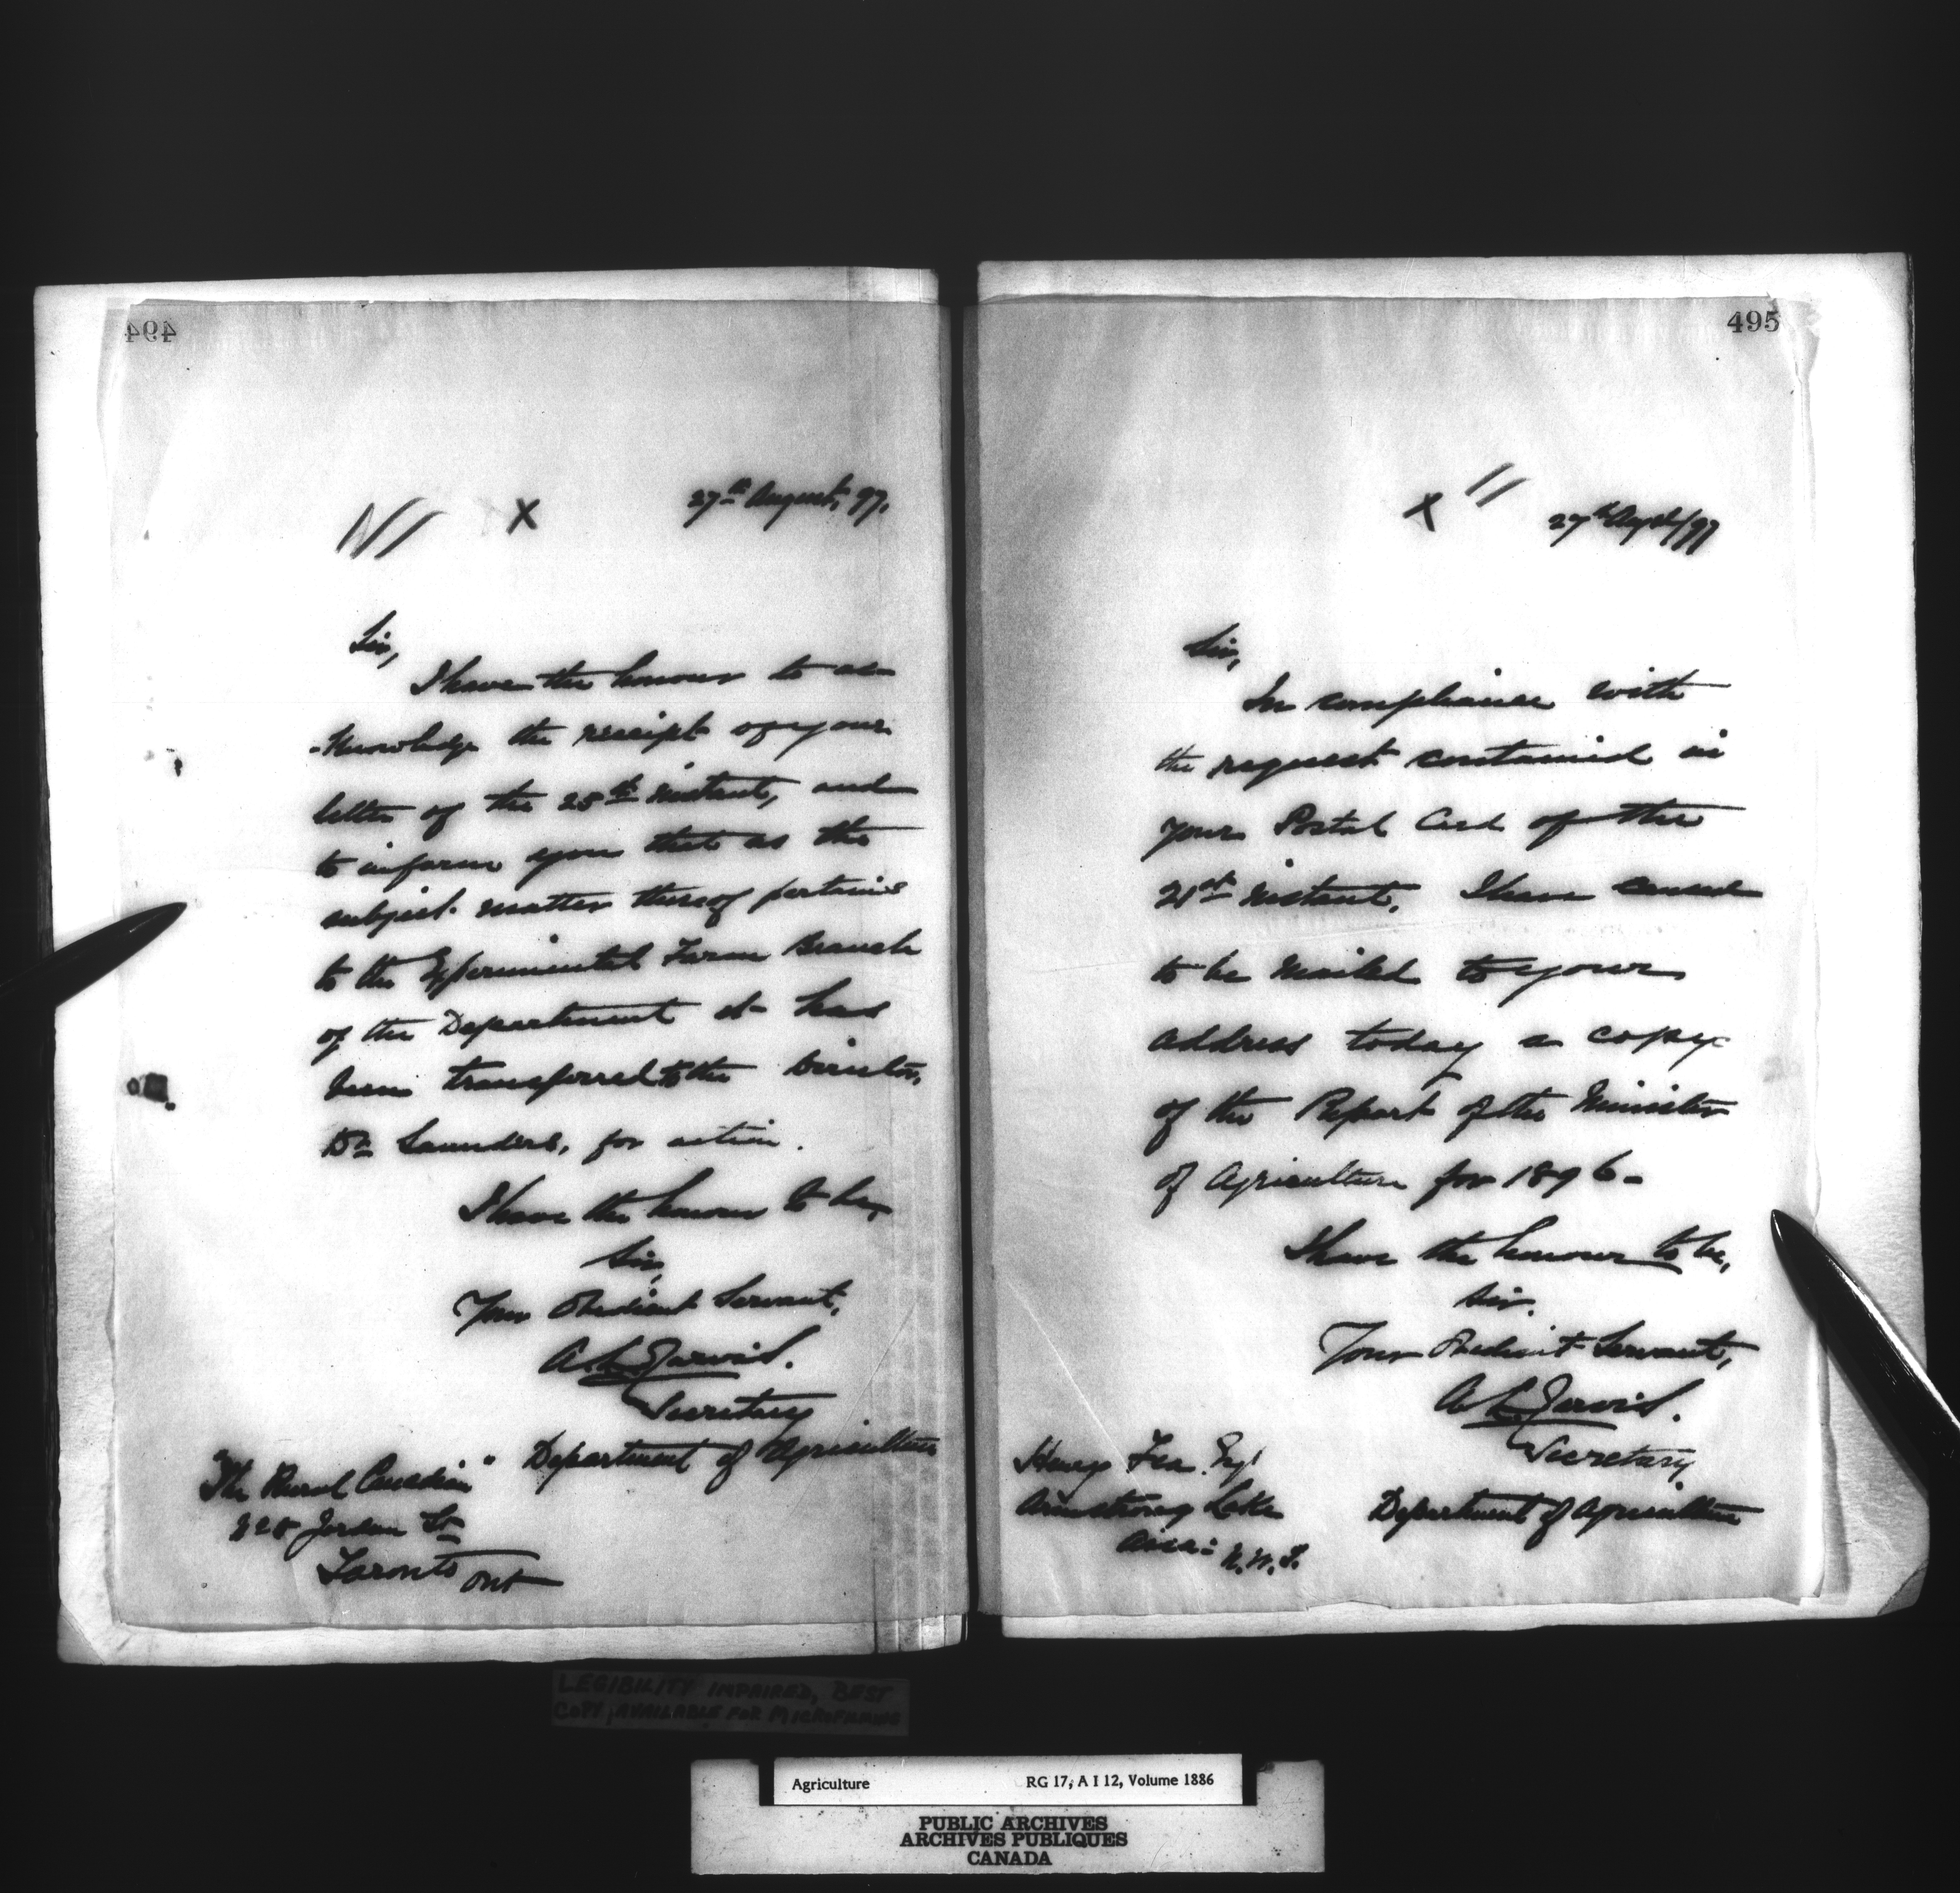 494
27th August, 97.
X
Sir,
I have the honour to ac-
-knowledge the receipt of your
letter of the 25th instant, and
to inform you that as the
subject matter thereof pertains
to the Experimental Farm Branch
of the Department it has
been transferred to the Director,
Dr Saunders, for action.
I have the honour to be,
Sir,
Your Obedient Servant,
A. L. Jarvis.
Secretary
Department of Agriculture
"The Rural Canadian"
Jordan St
Toronto Ont
495
X
27th Augst/97
Sir,
In compliance with
the request contained in
your Postal Card of the
21st instant, I have caused
to be mailed to your
address today a copy
of the Report of the Minister
of Agriculture for 1896-
I have the honour to be,
Sir.
Your Obedient Servant,
A. L. Jarvis.
Secretary
Department of Agriculture
Henry Esq
Armstrong Lake
Assa: N.W.T.
LEGIBILITY IMPAIRED, BEST
COPY AVAILABLE FOR MICROFILMING
Agriculture RG 17, A I 12, Volume 1886
PUBLIC ARCHIVES
ARCHIVES PUBLIQUES
CANADA